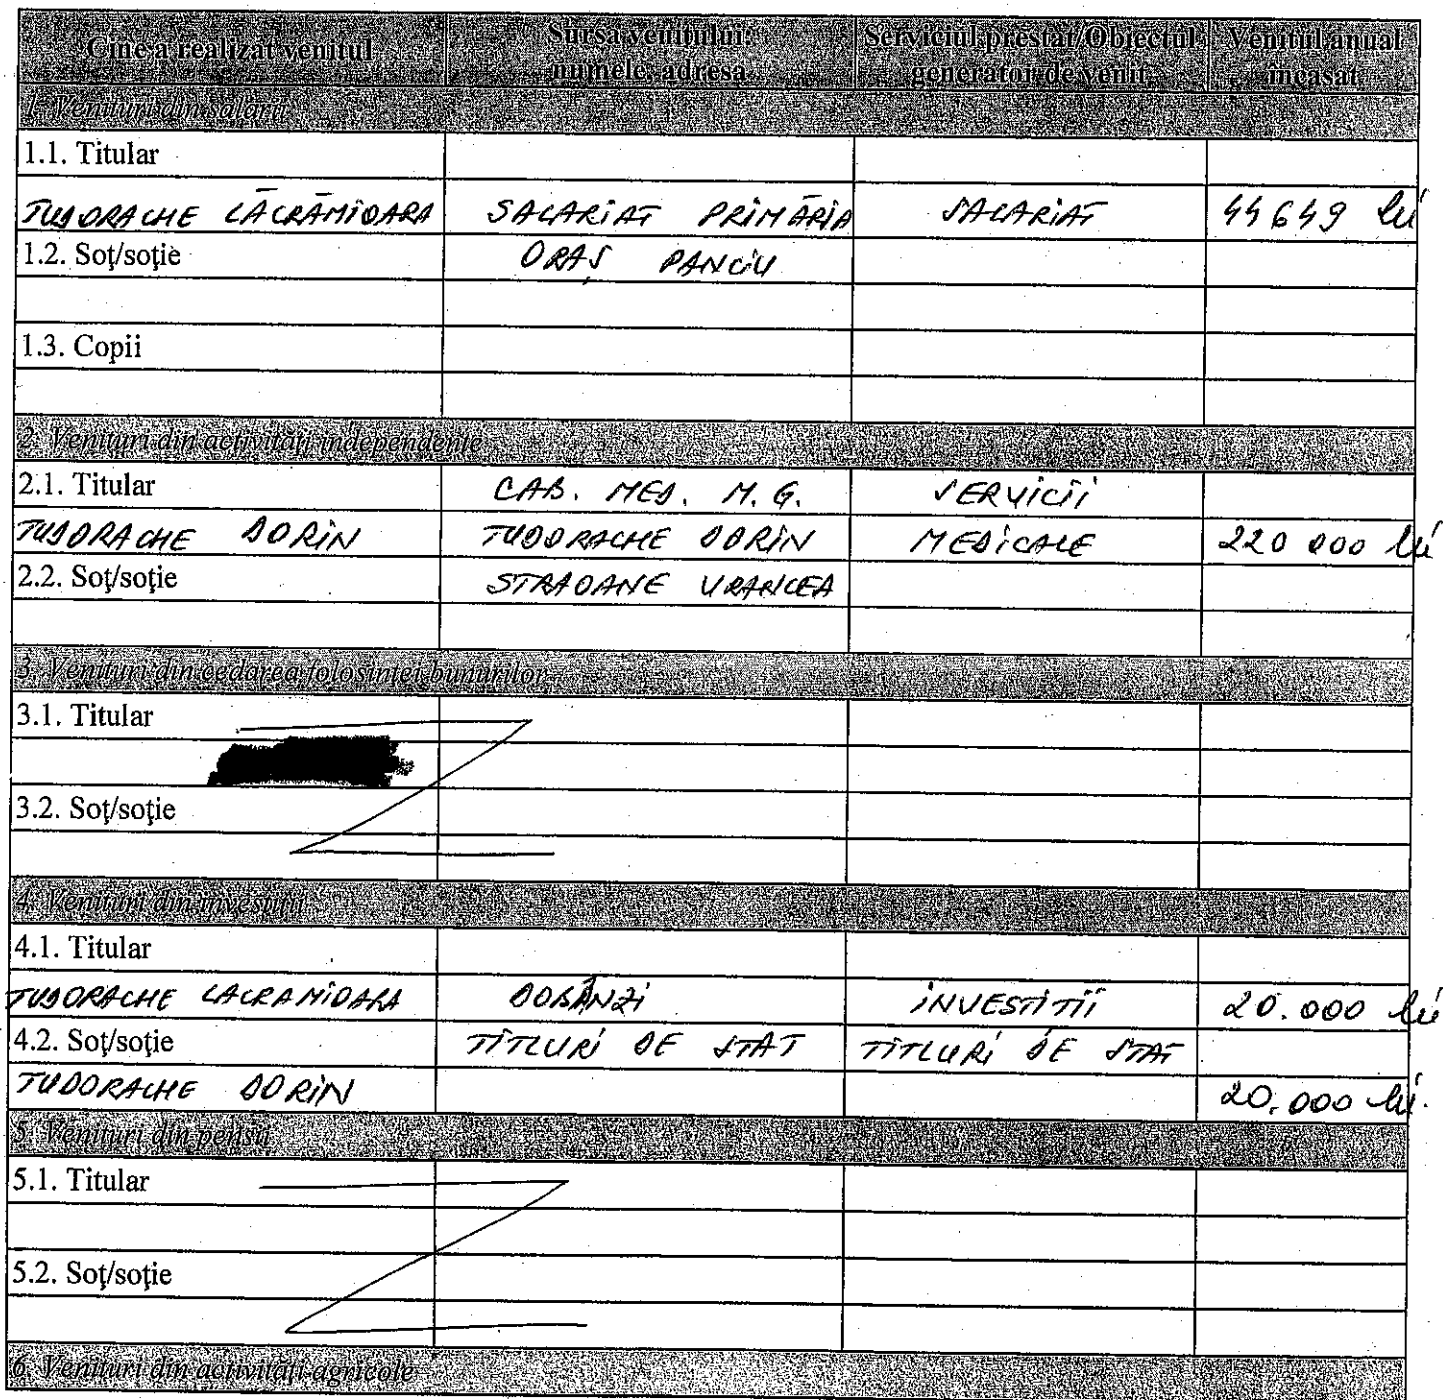 Cine a realizat venitul
Sursa venitului:
numele, adresa
Serviciul prestat/Obiectul
generator de venit
Venitul anual
încasat
1. Venituri din salarii
1.1. Titular
TUDORACHE LĂCRĂMIOARA SALARIAT PRIMĂRIA SALARIAT 44649 lei
1.2. Soţ/soţie ORAȘ PANCIU
1.3. Copii
2. Venituri din activităţi independente
2.1. Titular CAB. MED. M. G. SERVICII
TUDORACHE DORIN TUDORACHE DORIN MEDICALE 220 000 lei
2.2. Soţ/soţie STRAOANE VRANCEA
3. Venituri din cedarea folosinţei bunurilor
3.1. Titular
3.2. Soţ/soţie
4. Venituri din investiţii
4.1. Titular
TUDORACHE LACRAMIOARA DOBÂNZI INVESTITII 20.000 lei
4.2. Soţ/soţie TITLURI DE STAT TITLURI DE STAT
TUDORACHE DORIN 20.000 lei.
5. Venituri din pensii
5.1. Titular
5.2. Soţ/soţie
6. Venituri din activităţi agricole